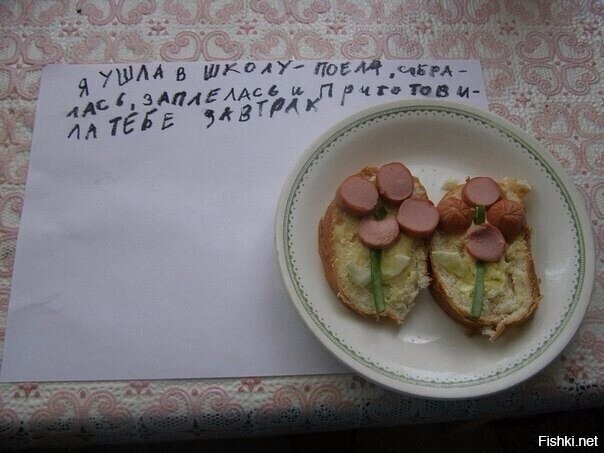 Я УШЛА В ШКОЛУ - ПОЕЛА, СОБРА-
ЛАСЬ, ЗАПЛЕЛАСЬ И ПРИГОТОВИ-
ЛА ТЕБЕ ЗАВТРАК
Fishki.net